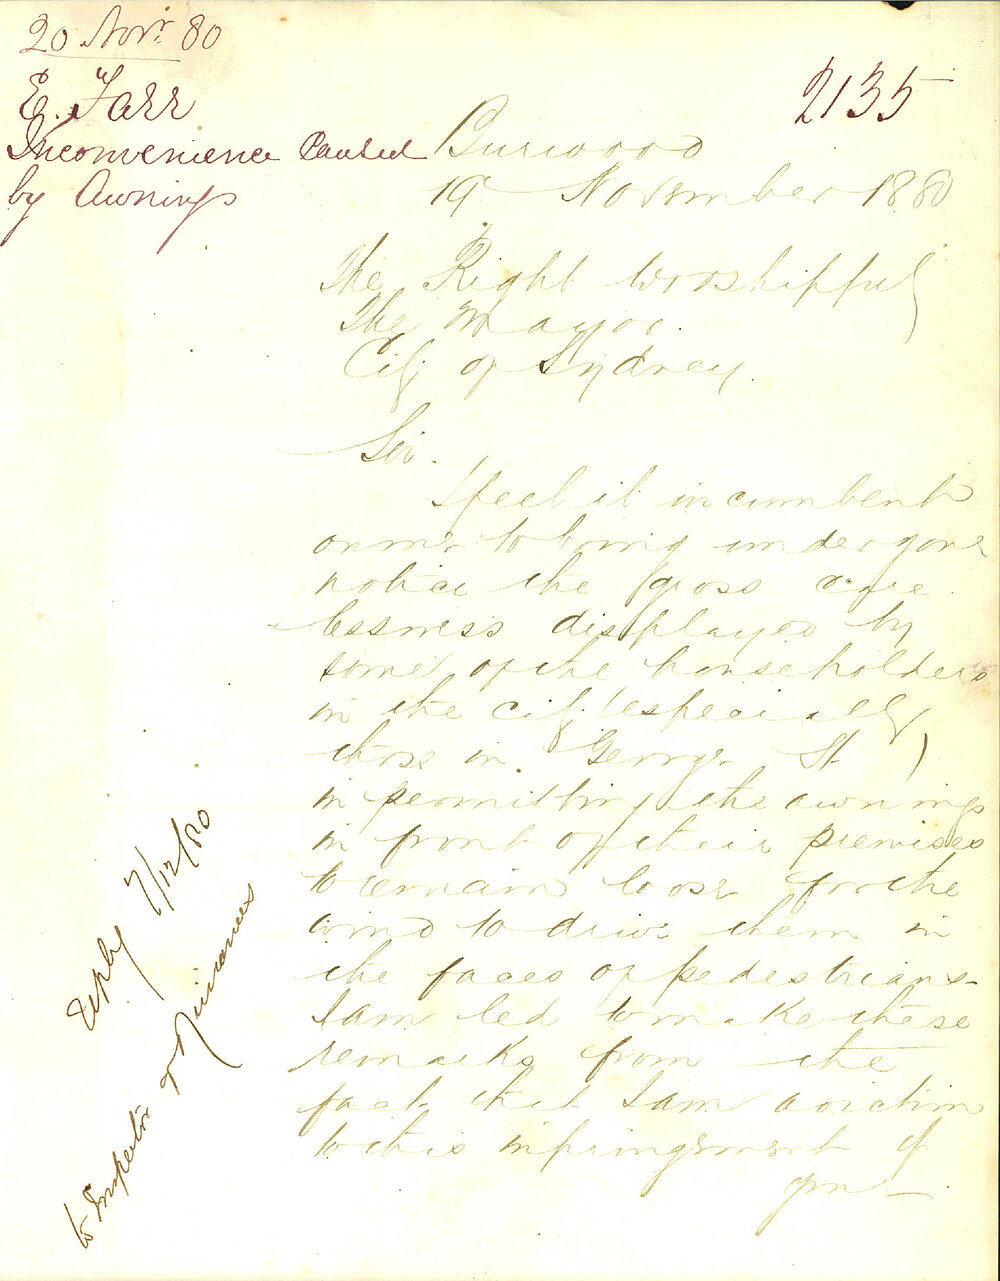 20 Novr 80
E. Farr
Inconvenience Caused
by Awnings
2135
Burwood
19 November 1880
The Right Worshipful
The Mayor
City of Sydney.
Sir.
I feel it incumbent
on me to bring under your
notice the gross care
lessness displayed by
some of the householders
in the city (especially
those in George St )
in permitting the awnings
in front of their premises
to remain loose for the
wind to drive them in
the faces of pedestrians-
I am led to make these
remarks from the
fact that I am a victim
to this infringement of
your
Reply 7/12/80
to Inspector of Nuisances